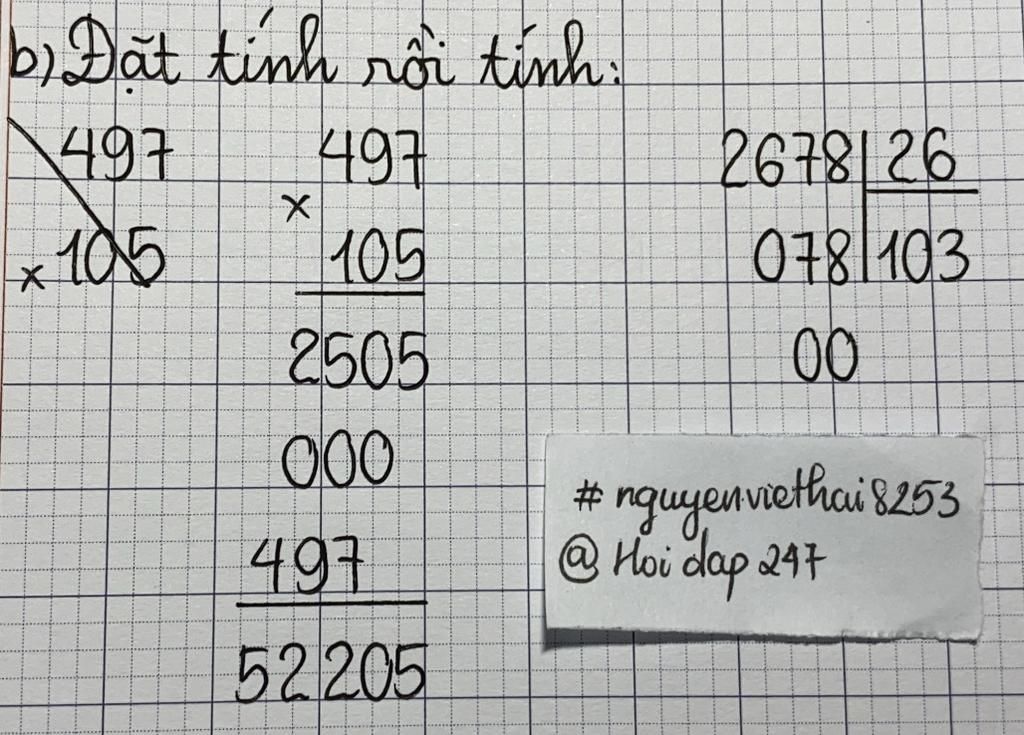 b) Đặt tính rồi tính:
497 497 2678 26
x 105 x 105 078 103
2505 00
000
497
52205
# nguyenviethai8253
@ Hoi dap 247